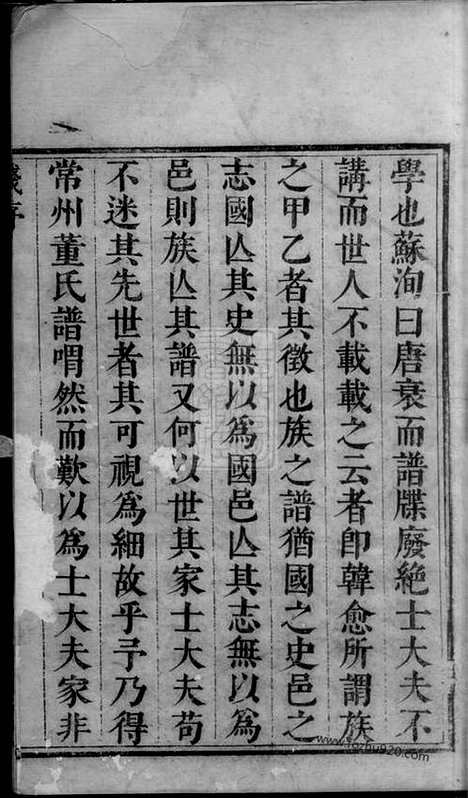 學也蘇洵曰唐衰而譜牒廢絕士大夫不
講而世人不載載之云者卽韓愈所謂族
之甲乙者其徵也族之譜猶國之史邑之
志國亾其史無以爲國邑亾其志無以爲
邑則族亾其譜又何以世其家士大夫苟
不迷其先世者其可視爲細故乎予乃得
常州董氏譜喟然而歎以爲士大夫家非